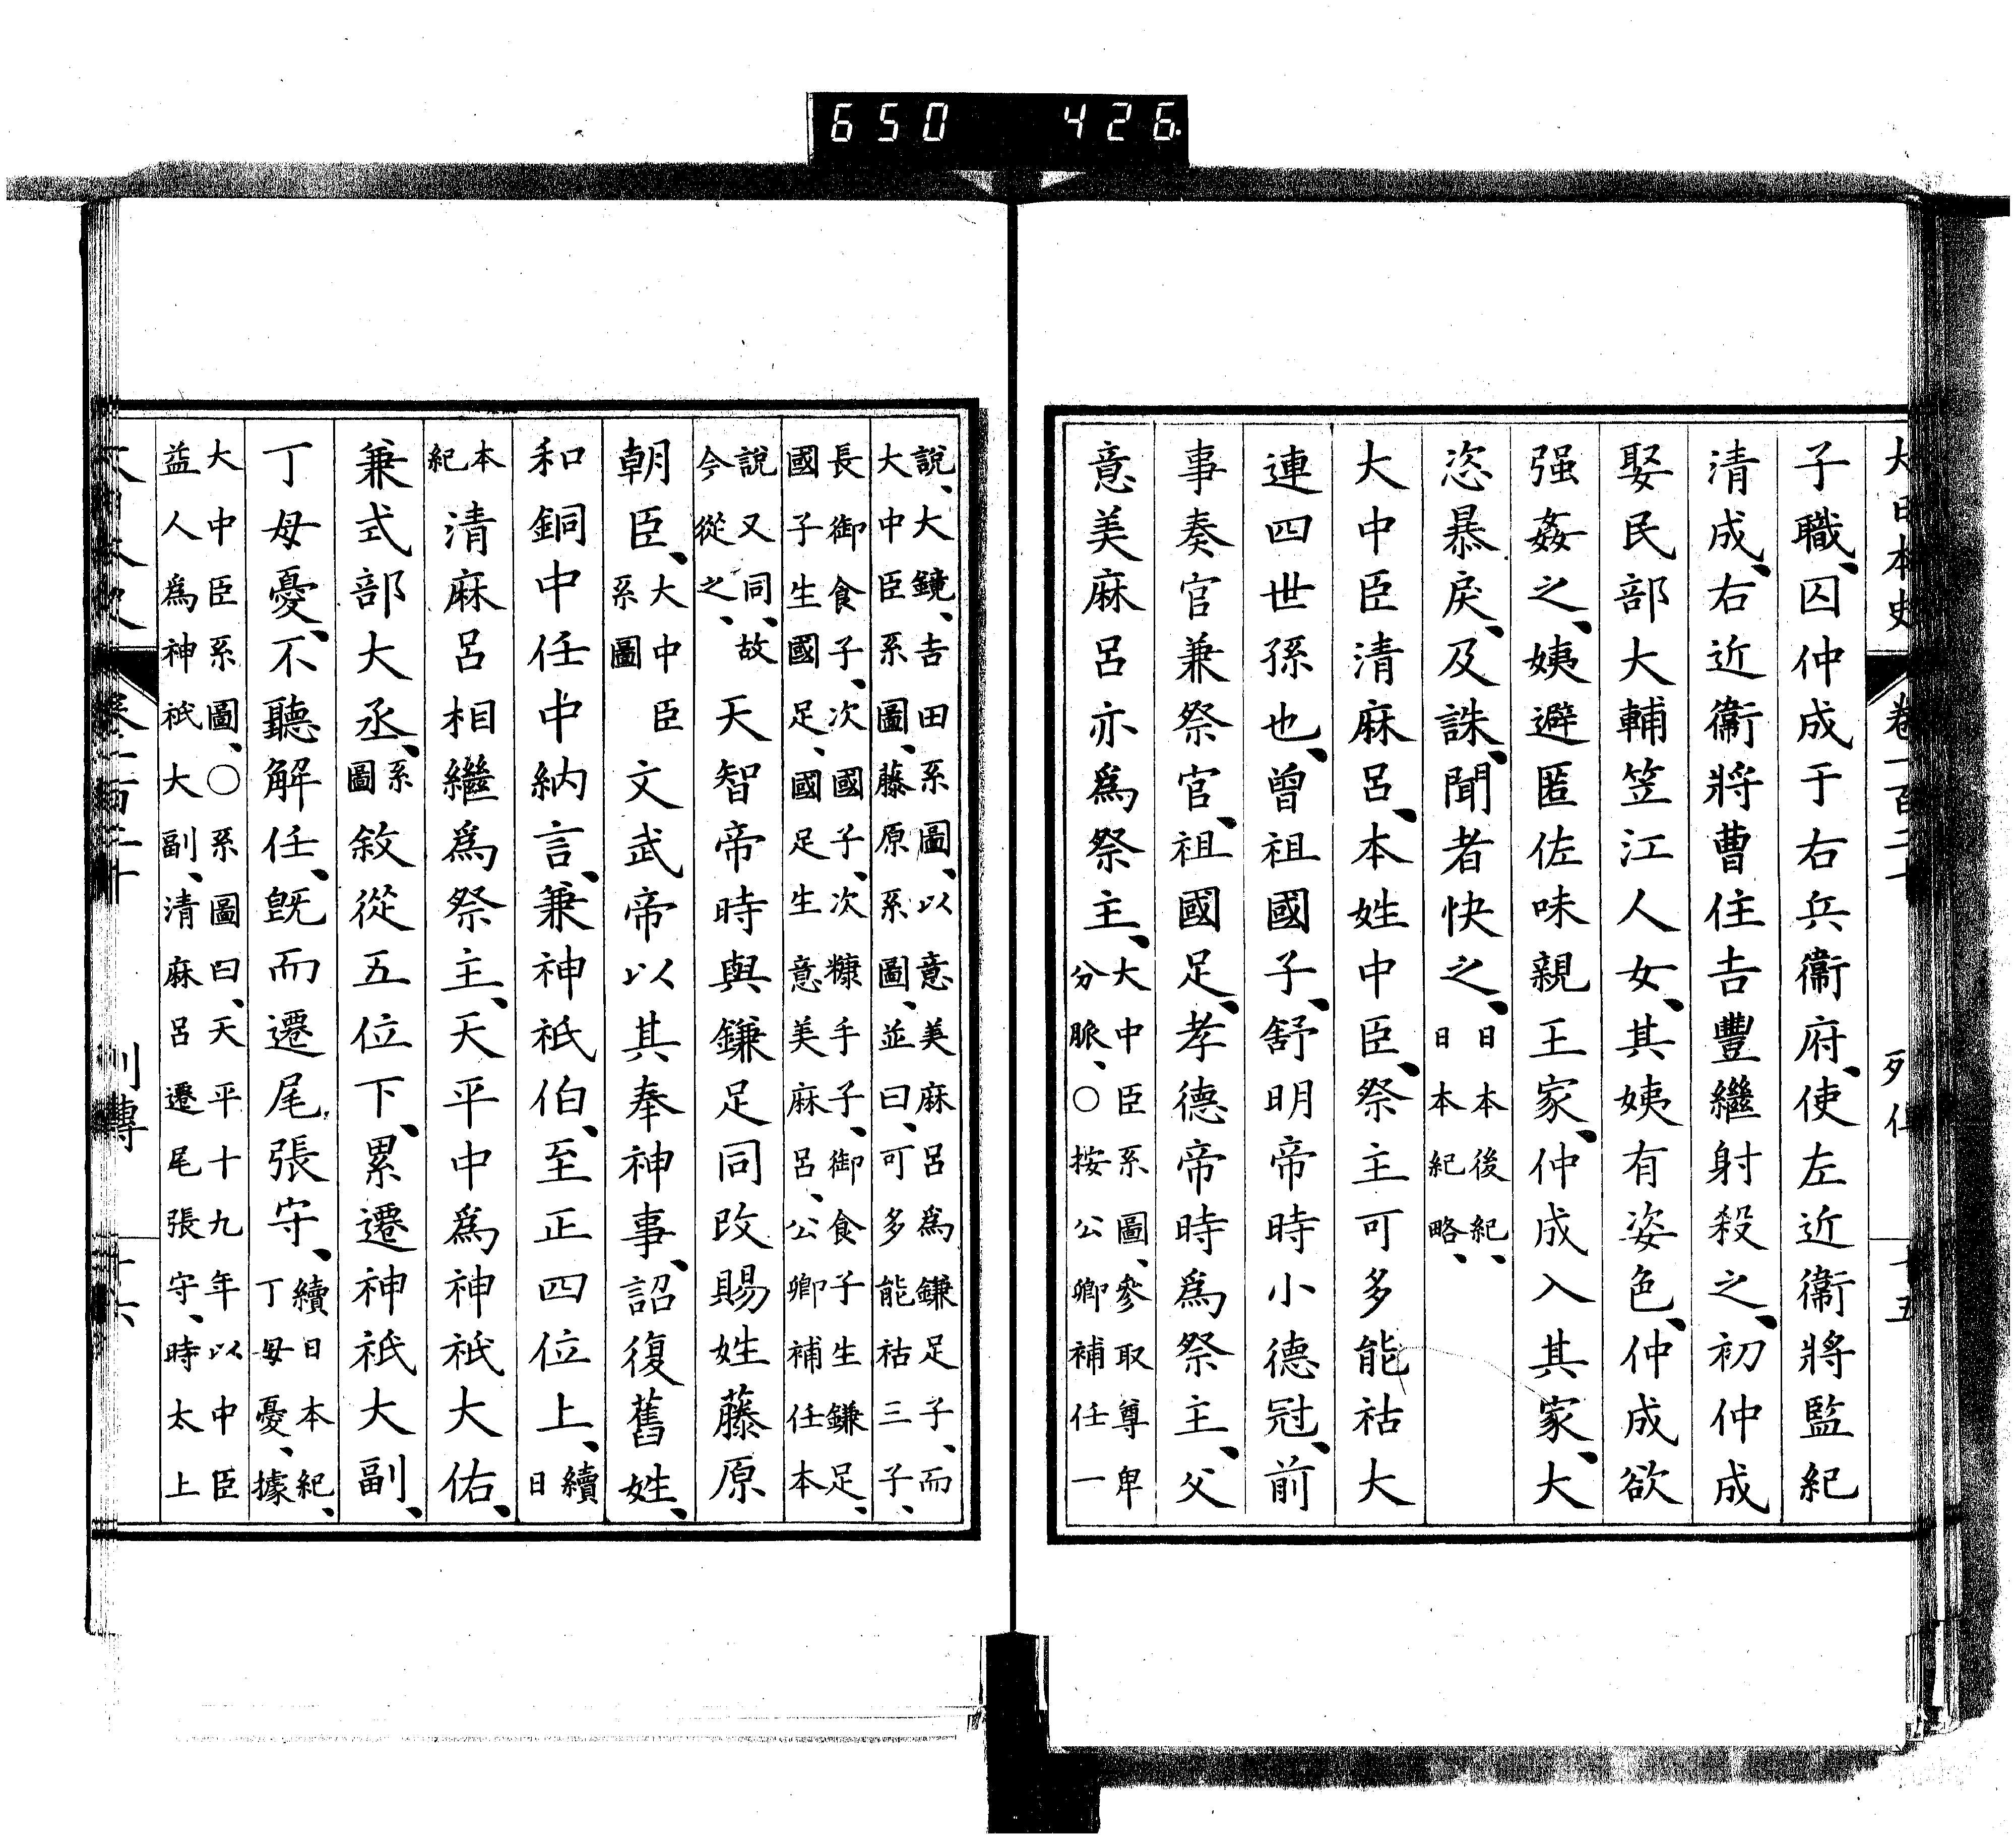 650 426
大日本史 卷一百二十 列傳 十五
子職、囚仲成于右兵衞府、使左近衞將監紀
清成、右近衞將曹住吉豐繼射殺之、初仲成
娶民部大輔笠江人女、其姨有姿色、仲成欲
强姦之、姨避匿佐味親王家、仲成入其家、大
恣暴戾、及誅、聞者快之、日本後紀、日本紀略、
大中臣清麻呂、本姓中臣、祭主可多能祜大
連四世孫也、曾祖國子、舒明帝時小德冠、前
事奏官兼祭官、祖國足、孝德帝時爲祭主、父
意美麻呂亦爲祭主、大中臣系圖、參取尊卑分脈、○按公卿補任一
說、大鏡、吉田系圖、以意美麻呂爲鎌足子、而大中臣系圖、藤原系圖、並曰、可多能祜三子、
長御食子、次國子、次糠手子、御食子生鎌足、國子生國足、國足生意美麻呂、公卿補任本
說又同、故今從之、天智帝時與鎌足同改賜姓藤原
朝臣、大中臣系圖文武帝以其奉神事、詔復舊姓、
和銅中任中納言、兼神祇伯、至正四位上、續日
本紀清麻呂相繼爲祭主、天平中爲神祇大佑、
兼式部大丞、系圖敘從五位下、累遷神祇大副、
丁母憂、不聽解任、旣而遷尾張守、續日本紀、丁母憂、據
大中臣系圖、○系圖曰、天平十九年以中臣益人爲神祇大副、清麻呂遷尾張守、時太上
列傳 十六